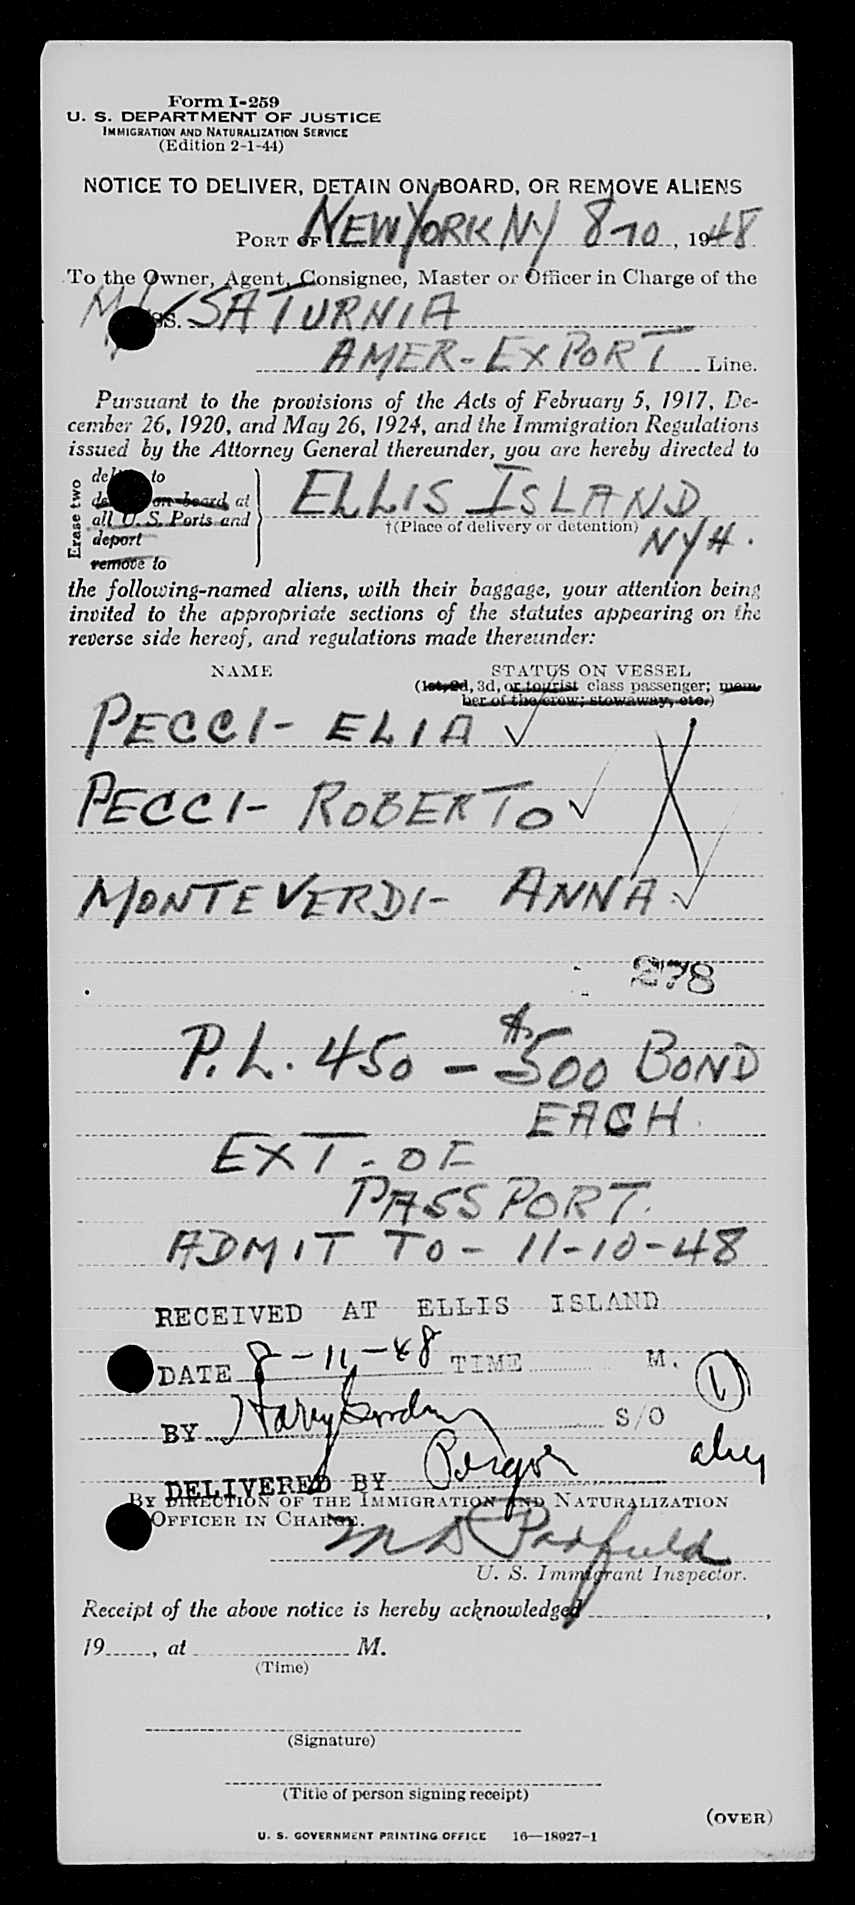 Form I-259
U. S. DEPARTMENT OF JUSTICE
IMMIGRATION AND NATURALIZATION SERVICE
(Edition 2-1-44)
NOTICE TO DELIVER, DETAIN ON BOARD, OR REMOVE ALIENS
PORT OF NEW YORK NY 8-10, 1948
To the Owner, Agent, Consignee, Master or Officer in Charge of the
SS. SATURNIA
AMER-EXPORT Line.
Pursuant to the provisions of the Acts of February 5, 1917, De-
cember 26, 1920, and May 26, 1924, and the Immigration Regulations
issued by the Attorney General thereunder, you are hereby directed to
Erase two
to
on board at
all U. S. Ports and
deport
remove to
ELLIS ISLAND
†(Place of delivery or detention)
NYH.
the following-named aliens, with their baggage, your attention being
invited to the appropriate sections of the statutes appearing on the
reverse side hereof, and regulations made thereunder:
NAME STATUS ON VESSEL
(1st, 2d, 3d, or tourist class passenger; mem-
ber of the crew; stowaway, etc.)
PECCI- ELIA ✓
PECCI- ROBERTO ✓
MONTEVERDI- ANNA ✓
278
P.L. 450 - $500 BOND
EACH.
EXT. OF
PASSPORT.
ADMIT TO - 11-10-48
RECEIVED AT ELLIS ISLAND
DATE 8-11-48 TIME M.
BY Harry S/O
DELIVERED BY
BY DIRECTION OF THE IMMIGRATION AND NATURALIZATION
OFFICER IN CHARGE.
U. S. Immigrant Inspector.
Receipt of the above notice is hereby acknowledged ,
19 , at M.
(Time)
(Signature)
(Title of person signing receipt)
(OVER)
U. S. GOVERNMENT PRINTING OFFICE 16—18927-1